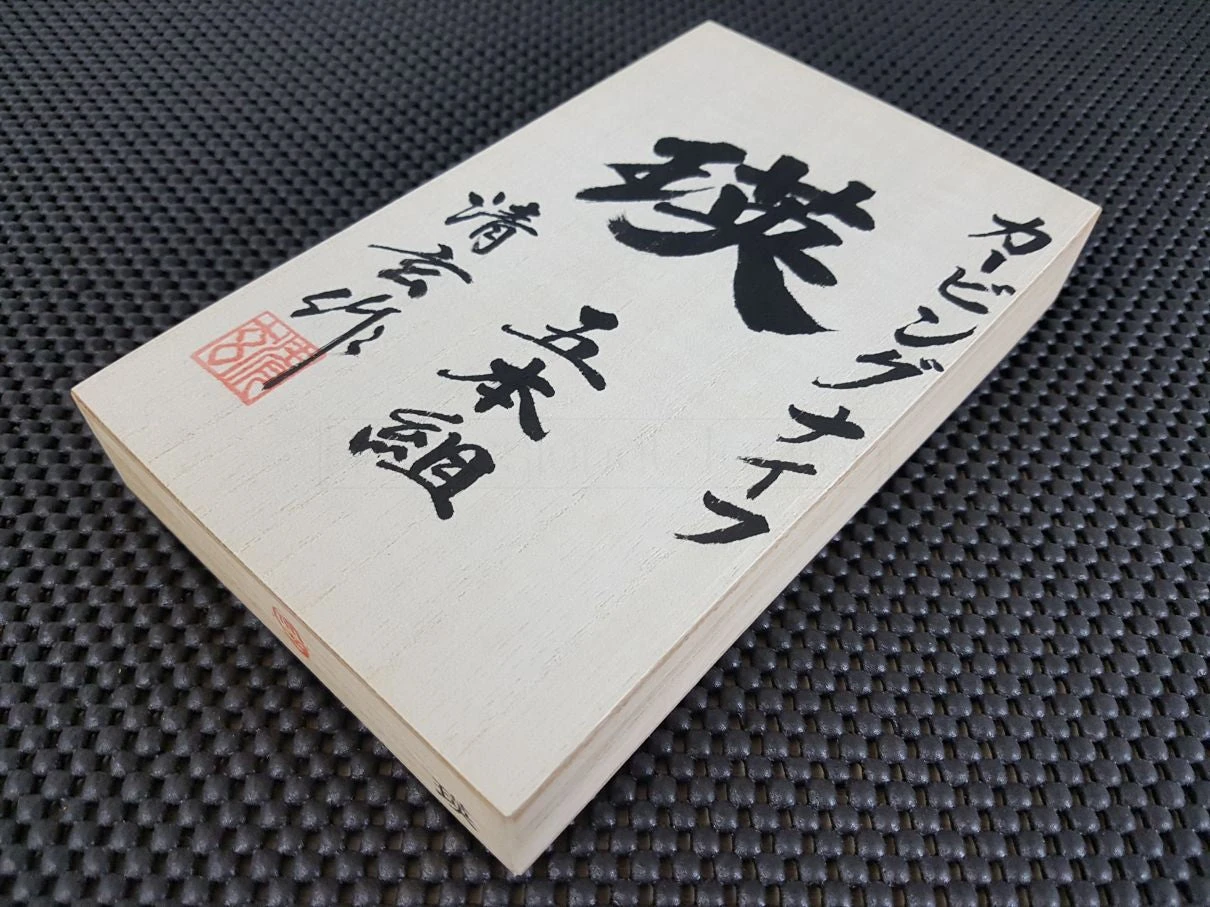 カービングナイフ
瑛
五本組
清玄作
瑛